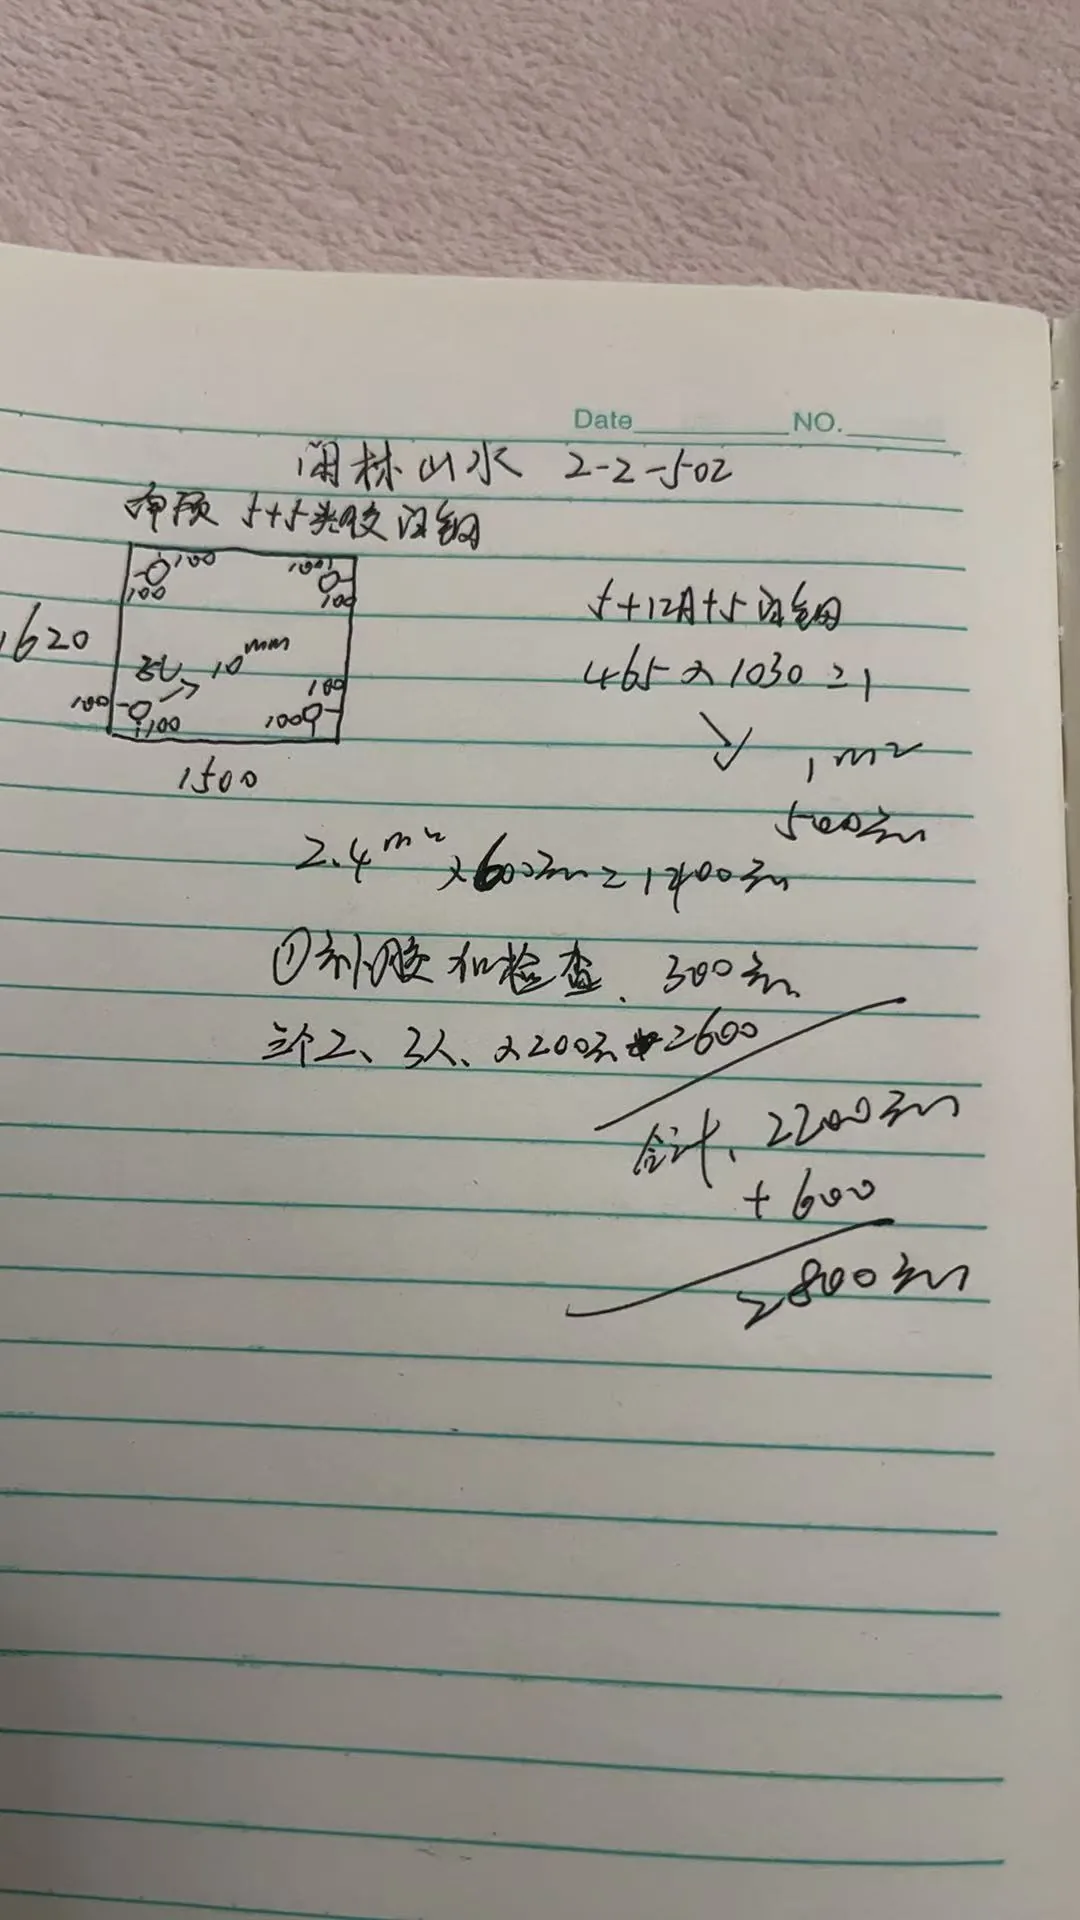 Date NO.
闲林山水 2-2-502
5+5夹胶门钢
100 100
100 100
1620
孔 10mm
100
100 100 100
1500
5+12A+5门钢
465×1030=1
1m²
500元
2.4m²×600元=1400元
①补胶和检查、300元
三个工、3人、×200元=2600
合计、2200元
+600
2800元